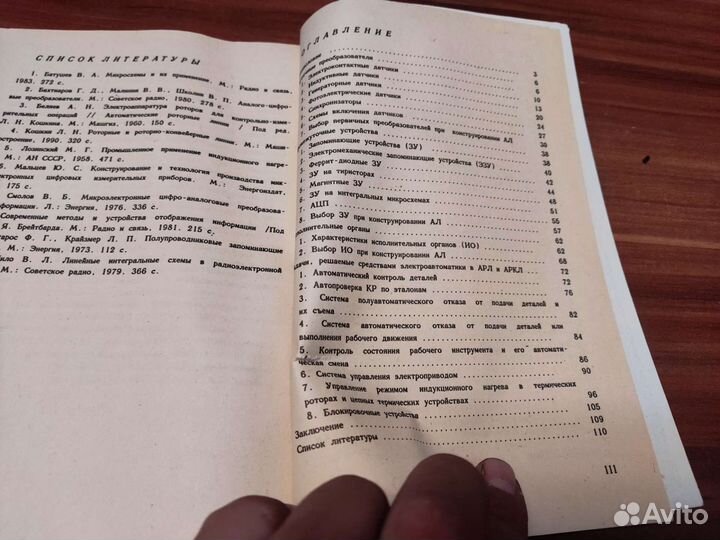 СПИСОК ЛИТЕРАТУРЫ
1. Батушев В. А. Микросхемы и их применение. М.: Радио и связь,
1983. 272 с.
2. Бахтиаров Г. Д., Малинин В. В., Школин В. П. Аналого-цифро-
вые преобразователи. М.: Советское радио, 1980. 278 с.
3. Беляев А. Н. Электроаппаратура роторов для контрольно-измери-
тельных операций // Автоматические роторные линии / Под ред.
Л. Н. Кошкина. М.: Машгиз, 1960. 150 с.
4. Кошкин Л. Н. Роторные и роторно-конвейерные линии. М.: Маши-
строение, 1990. 320 с.
5. Лозинский М. Г. Промышленное применение индукционного нагрева.
М.: АН СССР, 1958. 471 с.
6. Мальцев Ю. С. Конструирование и технология производства мик-
электронных цифровых измерительных приборов. М.: Энергоиздат,
175 с.
Смолов В. Б. Микроэлектронные цифро-аналоговые преобразова-
информации. Л.: Энергия, 1976. 336 с.
Современные методы и устройства отображения информации /Под
Я. Брейтбарда. М.: Радио и связь, 1981. 215 с.
Ф. Г., Крайзмер Л. П. Полупроводниковые запоминающие
М.: Энергия, 1973. 112 с.
В. Л. Линейные интегральные схемы в радиоэлектронной
М.: Советское радио, 1979. 366 с.
ОГЛАВЛЕНИЕ
3
преобразователи 6
Электроконтактные датчики 6
Индуктивные датчики 6
Генераторные датчики 10
Фотоэлектрические датчики 13
Синхронизаторы 20
Схемы включения датчиков 24
Выбор первичных преобразователей при конструировании АЛ 27
устройства 30
1. Запоминающие устройства (ЗУ) 38
2. Электромеханические запоминающие устройства (ЭЗУ) 38
3. Феррит-диодные ЗУ 38
4. ЗУ на тиристорах 40
5. Магнитные ЗУ 42
6. ЗУ на интегральных микросхемах 44
7. АЦП 48
8. Выбор ЗУ при конструировании АЛ 51
органы 55
1. Характеристики исполнительных органов (ИО) 56
2. Выбор ИО при конструировании АЛ 56
решаемые средствами электроавтоматики в АРЛ и АРКЛ 68
1. Автоматический контроль деталей 72
2. Автопроверка КР по эталонам 72
3. Система полуавтоматического отказа от подачи деталей и 76
их съема
4. Система автоматического отказа от подачи деталей или 82
выполнения рабочего движения
5. Контроль состояния рабочего инструмента и его автомати- 84
ческая смена 86
6. Система управления электроприводом 90
7. Управление режимом индукционного нагрева в термических
роторах и цепных термических устройствах 96
8. Блокировочные устройства 105
Заключение 109
Список литературы 110
111
Avito